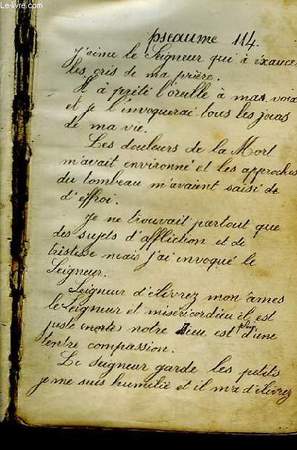 pseaume 114.
J'aime le Seigneur qui à éxaucer
les cris de ma prière.
Il à prété l'orulle à mas voix
et je l'invoquerae tous les jours
de ma vie.
Les douleurs de la Mort
m'avait environné et les approches
du tombeau m'avaint saisi de
d'effroi.
Je ne trouvait partout que
des sujets d'affliction et de
tristesse mais j'ai invoqué le
Seigneur.
Seigneur d'élivrez mon ames
le Seigneur et miséricordieu il est
juste notre Dieu est d'une
tentre compassion.
Le seigneur garde les petits
je me suis humilié et il m'a d'élivrez